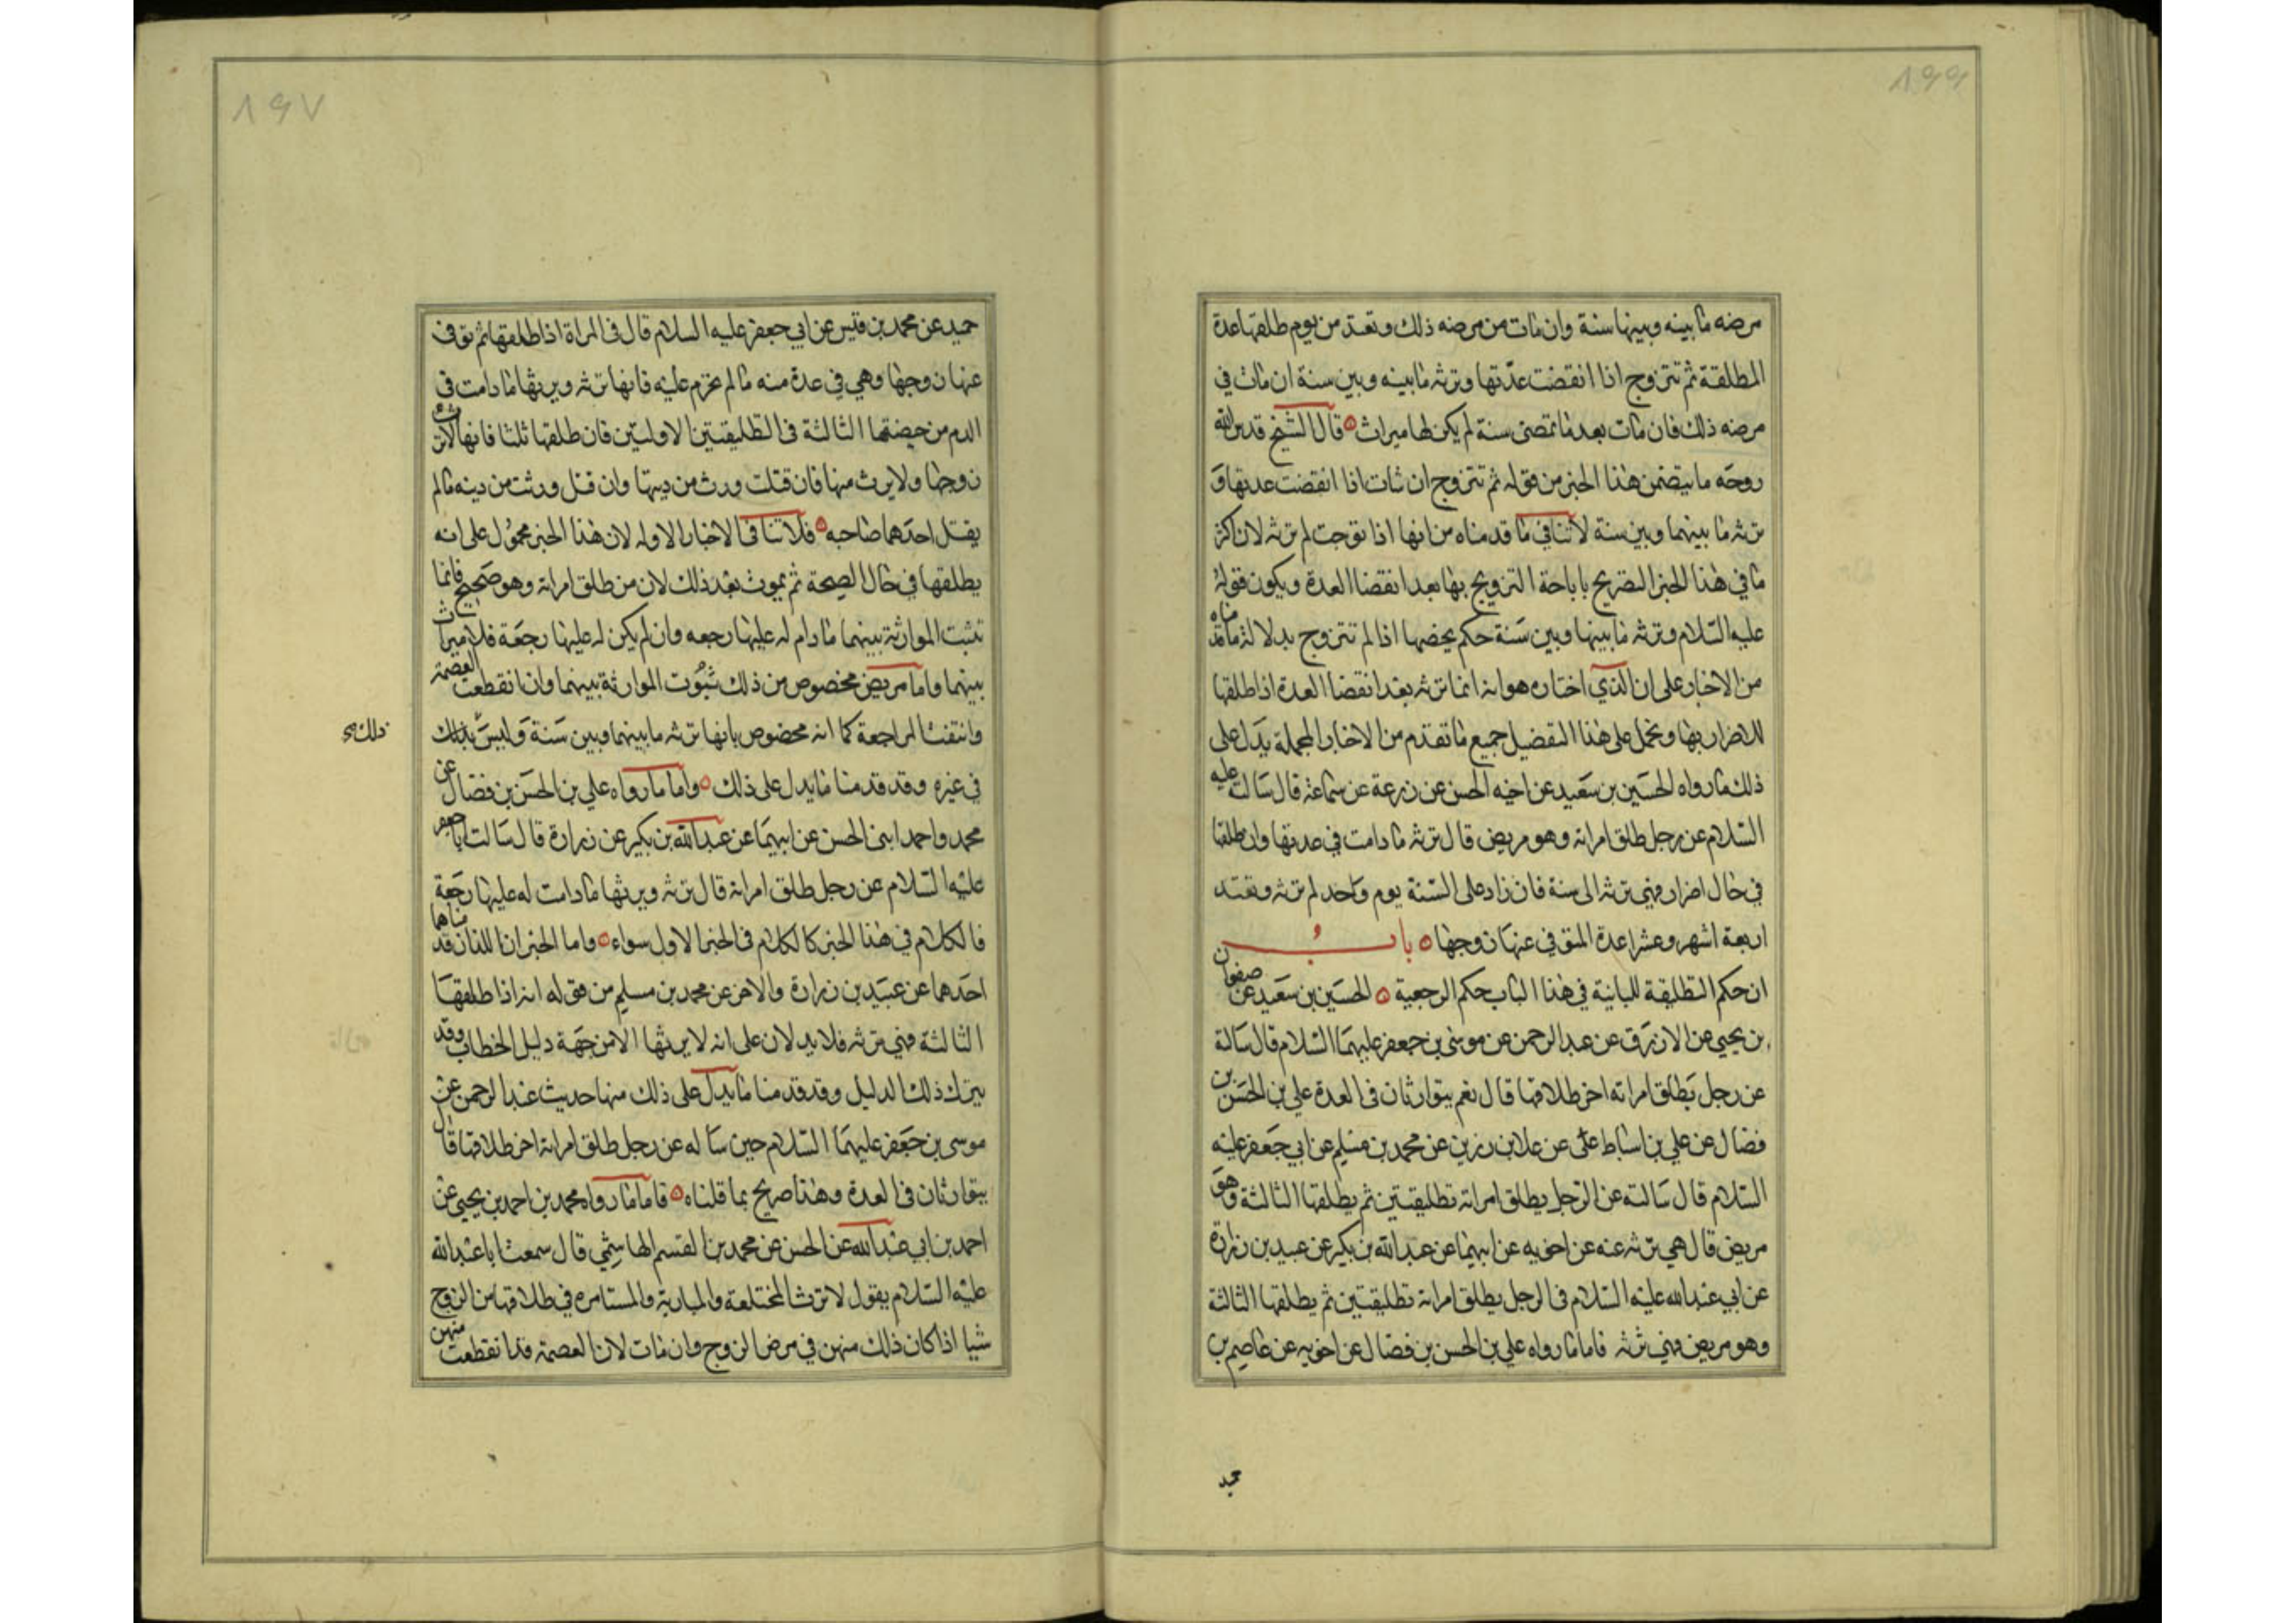 ٨٩٩
مرضه ما بينه وبينها سنة وان مات من مرضه ذلك وتعتد من يوم طلقها عدة
المطلقة ثم تتزوج اذا انقضت عدّتها وترثه ما بينه وبين سنة ان مات في
مرضه ذلك فان مات بعد ما تمضى سنة لم يكن لها ميراث ه قال الشيخ قدس الله
روحه ما يتضمن هذا الخبر من قوله ثم تتزوج ان شات اذا انقضت عدتها و
ترثه ما بينهما وبين سنة لا تنافي ما قدمناه من انها اذا تزوجت لم ترثه لان اكثر
ما في هذا الخبر التصريح باباحة التزويج بها بعد انقضا العدة ويكون قوله
عليه السّلام وترثه ما بينها وبين سَنة حكم يخصها اذا لم تتزوج بدلالة ما قدمناه
من الاخبار على ان الذي اختاره هو انه انما ترثه بعد انقضا العدة اذا طلقها
للاضرار بها ونحمل على هذا التفضيل جميع ما تقدم من الاخبار المجملة يدَل على
ذلك ما رواه الحسَين بن سَعيد عن اخيه الحسن عن زرعة عن سماعة قال سَالته عليه
السّلام عن رجل طلق امراته وهو مريض قال ترثه ما دامت في عدتها وان طلقها
في حال اضرار فهي ترثه الى سنة فان زاد على السّنة يوم واحد لم ترثه وتعتد
اربعة اشهر وعشرا عدة المتوفي عنها زوجها ه باب
ان حكم التطليقة البائنة في هذا الباب حكم الرجعية ه الحسَين بن سَعيد عن صفوان
بن يحيى عن الازرَق عن عبد الرحمن عن موسى بن جعفر عليهمَا السّلام قال سَالته
عن رجل يَطلق امراته اخر طلاقها قال نعم يتوارثان في العدة علي بن الحسَن بن
فضال عن علي بن اسباط عن علا بن رزين عن محمد بن مسْلم عن ابي جَعفر عليه
السّلام قال سَالته عن الرّجل يطلق امراته تطليقتين ثم يطلقها الثالثة وهوَ
مريض قال هي ترثه عنه عن اخويه عن ابيهما عن عبد الله بن بكير عن عبيد بن زرارة
عن ابي عبد الله عليه السّلام في الرجل يطلق امراته تطليقتين ثم يطلقها الثالثة
وهو مريض فهي ترثه فاما ما رواه علي بن الحسن بن فضال عن اخويه عن عاصم بن
٨٩٧
حميد عن محمد بن قيس عن ابي جعفر عليه السلام قال في المراة اذا طلقها ثم توفي
عنها زوجها وهي في عدة منه ما لم تحرم عليه فانها ترثه ويرثها ما دامت في
الدم من حيضتها الثالثة في التطليقتين الاوليتين فان طلقها ثلثا فانها لا ترث
زوجها ولا يرث منها فان قتلت ورث من ديتها وان قتل ورثت من ديته ما لم
يقتل احدهما صاحبه ه فلا تنافي الاخبار الاوله لان هذا الخبر محمُول على انه
يطلقها في حال الصحة ثم يموت بعْد ذلك لان من طلق امراته وهو صَحيح فانما
تثبت الموارثة بينهما ما دام له عليها رجعه وان لم يكن له عليها رجعَة فلا ميراث
بينهما واما مريض مخصوص من ذلك ثبُوت الموارثة بينهما وان انقطعت العصمة
وانتفت المراجعة كما انه مخصوص بانها ترثه ما بينهما وبين سَنة وليسَ بذلك
ذلك
في غيره وقد قدمنا ما يدل على ذلك ه واما ما رواه علي بن الحسَن بن فضال عن
محمد واحمد ابنى الحسن عن ابيهمَا عن عبد الله بن بكير عن زرارة قال سَالت ابا جعفر
عليْه السّلام عن رجل طلق امراته قال ترثه ويرثها ما دامت له عليها رجَعة
فالكلام في هذا الخبر كالكلام في الخبر الاول سواء ه واما الخبر ان اللذان قدمناهما
احدَهما عن عبيَد بن زرارة والاخر عن محمد بن مسلم من قوله انه اذا طلقهَا
الثالثة فهي ترثه فلا يدلان على انه لا يرثها الا من جهَة دليل الخطاب وقد
يترك ذلك الدليل وقد قدمنا ما يدلّ على ذلك منها حديث عبْد الرحمن عنْ
موسى بن جَعفر عليهمَا السّلام حين سَاله عن رجل طلق امراته اخر طلاقها قال
يتوارثان في العدة وهذا صريح بما قلناه ه فاما ما رواه محمد بن احمد بن يحيى عنْ
احمد بن ابي عبْد الله عن الحسن عن محمد بن القسم الهاشمي قال سمعت ابا عبْد الله
عليْه السّلام يقول لا ترث المختلعة والمبارية والمستامره في طلاقها من الزوج
شيا اذا كان ذلك منهن في مرض الزوج وان مات لان العصمة قد انقطعت منهن